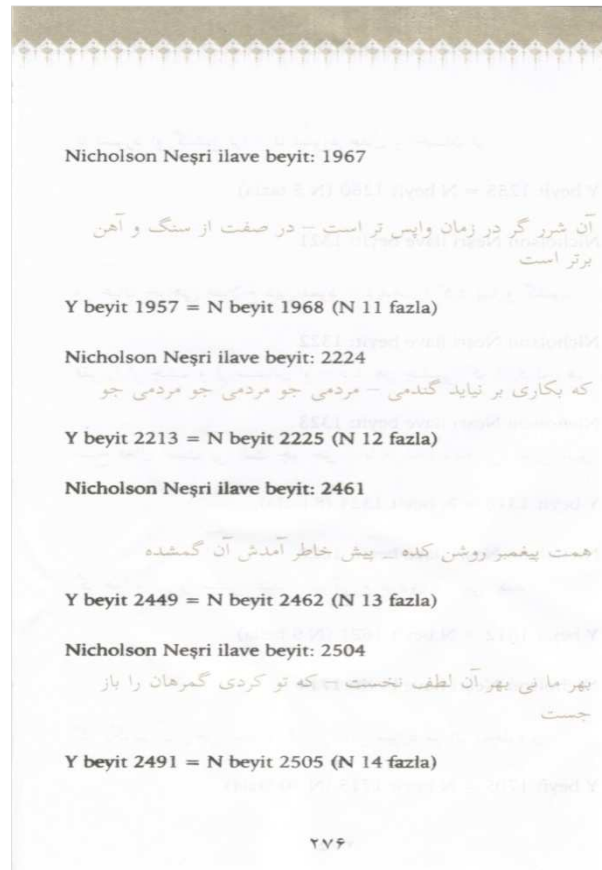 Nicholson Neşri ilave beyit: 1967
آن شرر گر در زمان واپس تر است – در صفت از سنگ و آهن
برتر است
Y beyit 1957 = N beyit 1968 (N 11 fazla)
Nicholson Neşri ilave beyit: 2224
که بکاری بر نیاید گندمی – مردمی جو مردمی جو مردمی جو
Y beyit 2213 = N beyit 2225 (N 12 fazla)
Nicholson Neşri ilave beyit: 2461
همت پیغمبر روشن کده _ پیش خاطر آمدش آن گمشده
Y beyit 2449 = N beyit 2462 (N 13 fazla)
Nicholson Neşri ilave beyit: 2504
بهر ما نی بهر آن لطف نخست – که تو کردی گمرهان را باز
جست
Y beyit 2491 = N beyit 2505 (N 14 fazla)
۲۷۶